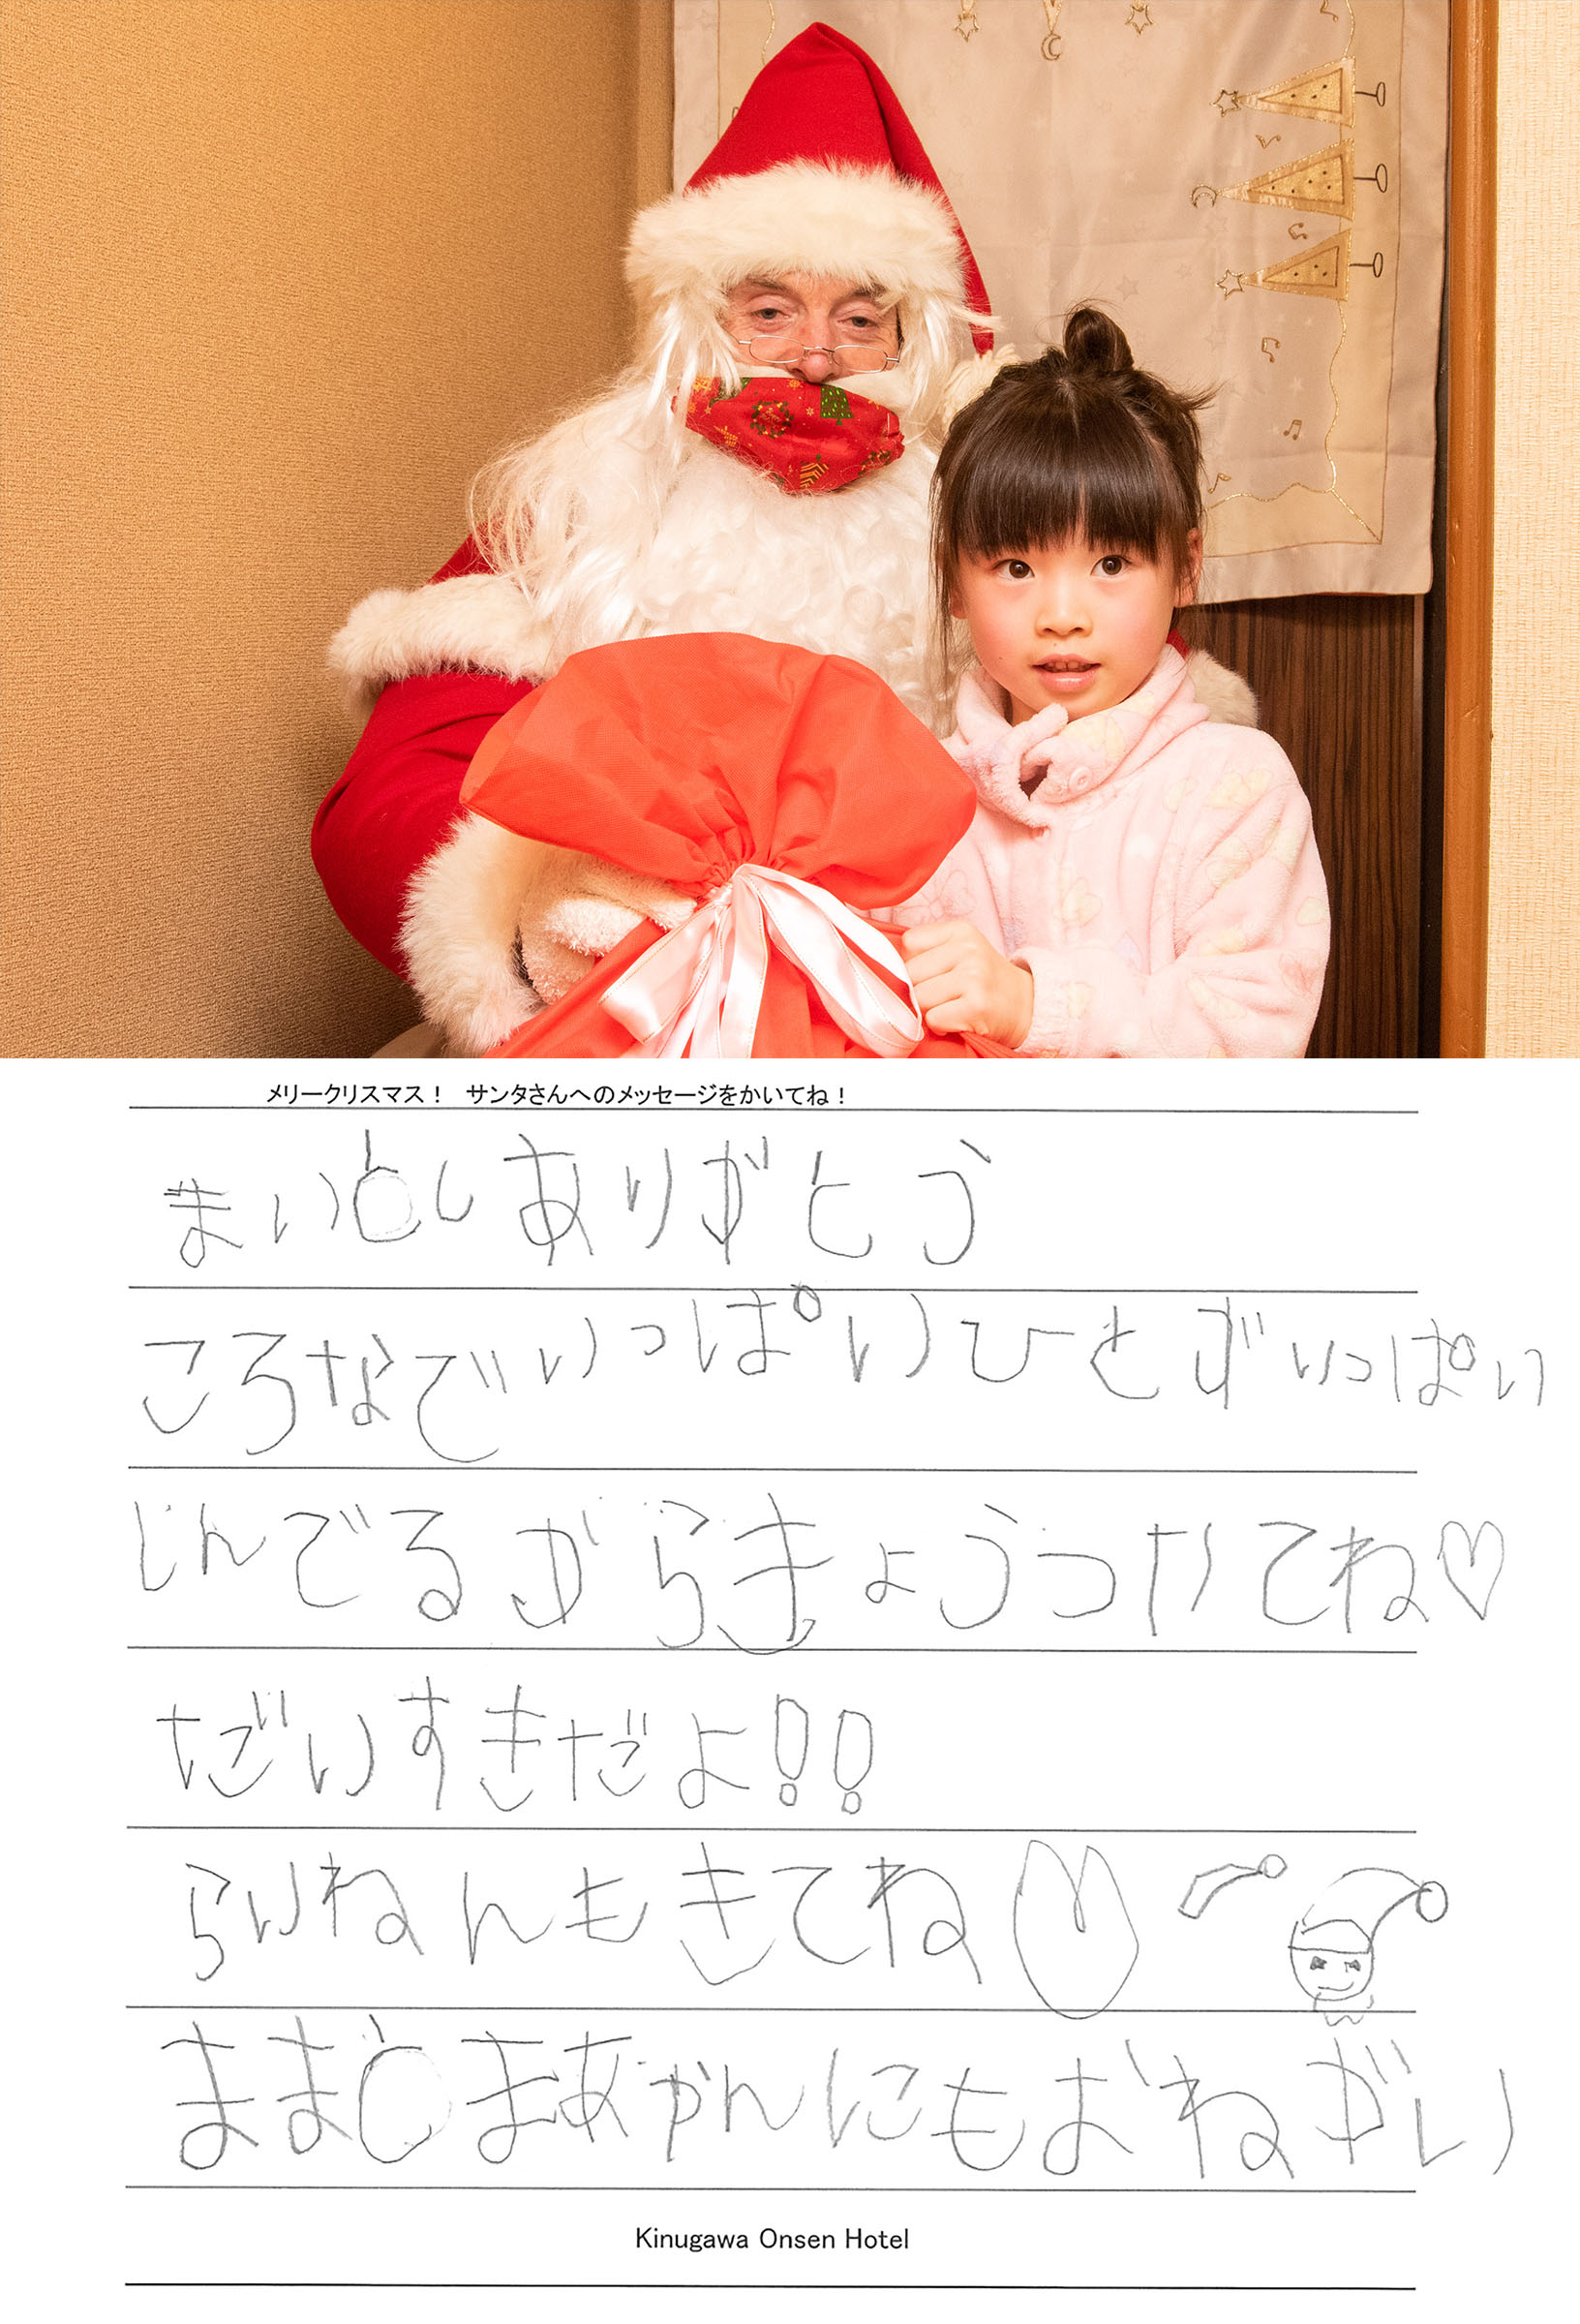 メリークリスマス！ サンタさんへのメッセージをかいてね！
まいとしありがとう
ころなでいっぱいひとがいっぱい
しんでるがらきょうつけてね♡
だいすきだよ!!
らいねんもきてね♡
ままとまあかんにもおねがい
Kinugawa Onsen Hotel